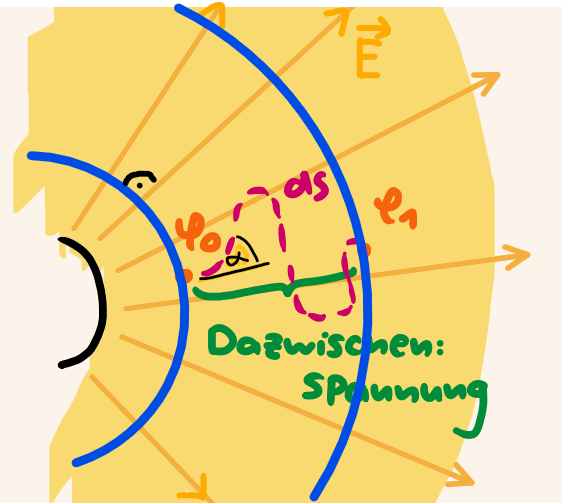 E
ds
φ₀
φ₁
α
Dazwischen:
Spannung